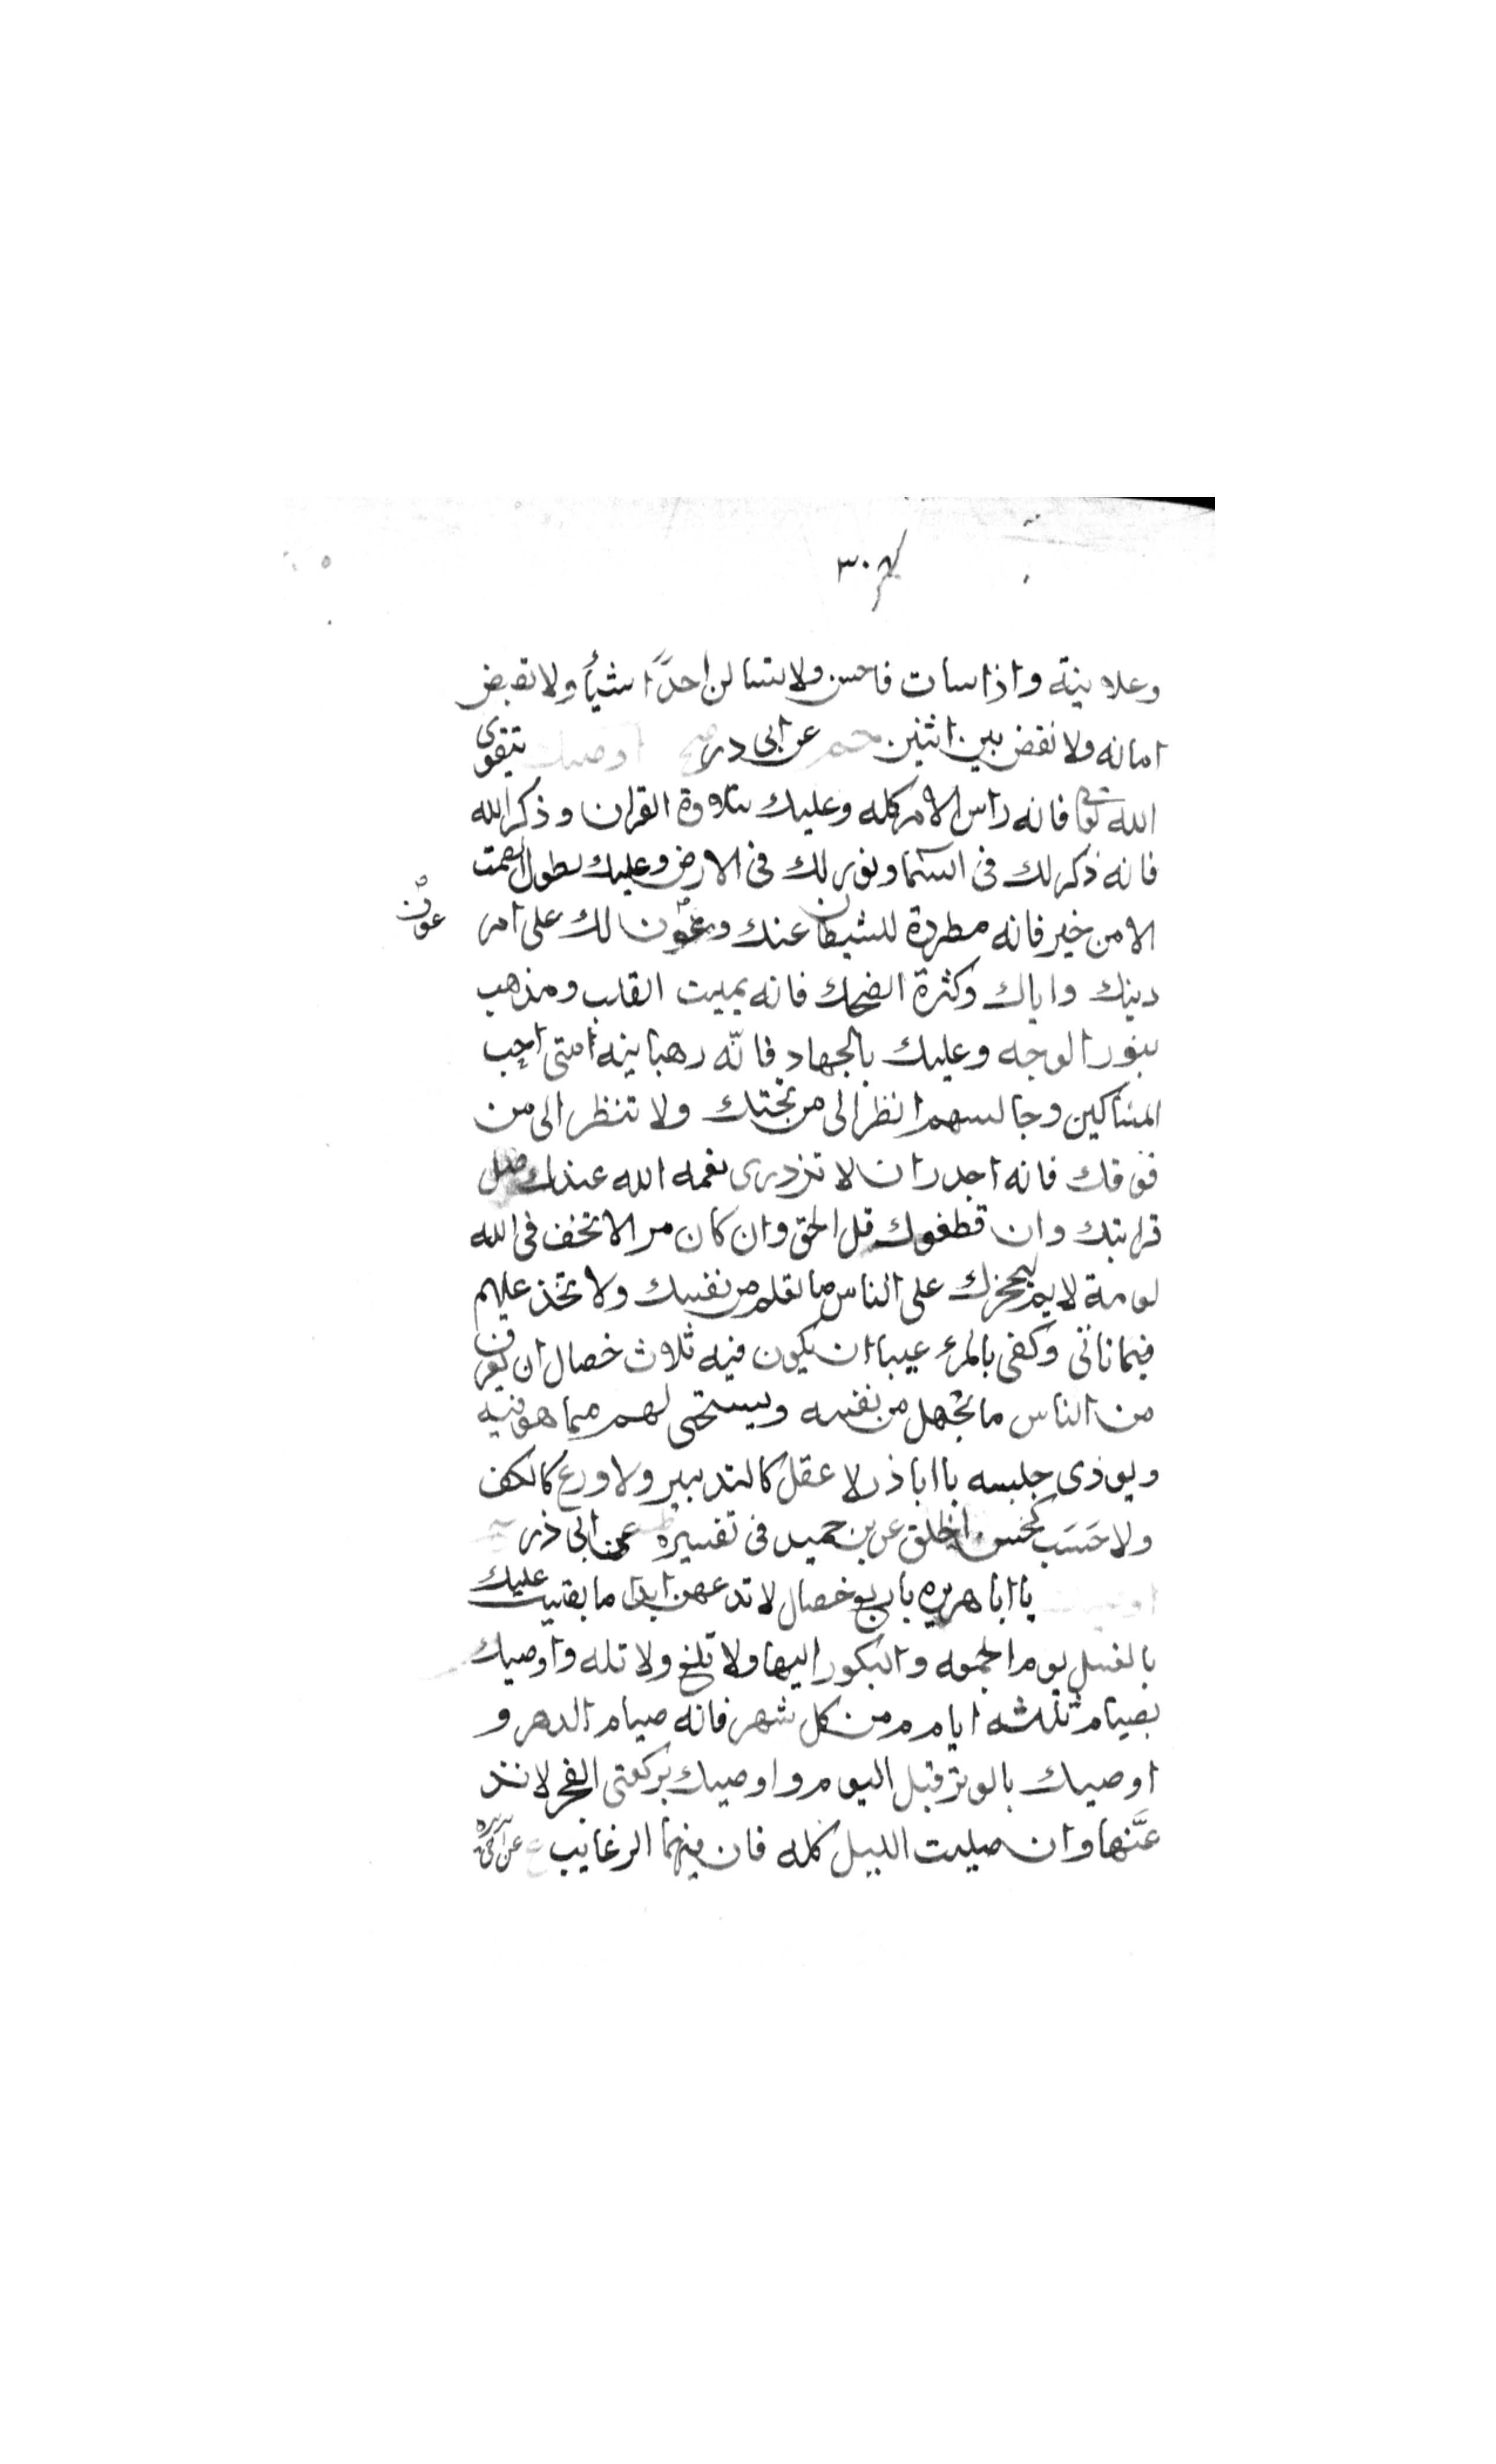 ٣٠٤
وعلانيته واذا اسات فاحسن ولا تسالن احدًا شيأ ولا تقبض
امانه ولا تقض بين اثنين حم عن ابى در اوصيك بتقوى
الله تعا فانه راس الامر كله وعليك بتلاوة القران وذكر الله
فانه ذكر لك فى السما ونور لك فى الارض وعليك بطول الصمت
الا من خير فانه مطردة للشيطان عنك وعون لك على امر
عون
دينك واياك وكثرة الضحك فانه يميت القلب ومذهب
بنور الوجه وعليك بالجهاد فانّه رهبانيه امتى احب
المساكين وجالسهم انظر الى من تحتك ولا تنظر الى من
فوقك فانه اجدر ان لا تزدرى نعمه الله عندك صل
قرابتك وان قطعوك قل الحق وان كان مر الا تخف فى الله
لومة لايم ليحجزك على الناس ما تعلم من نفسك ولا تجد عليهم
فيما تاتى وكفى بالمرء عيبا ان يكون فيه ثلاث خصال ان يعرف
من الناس ما يجهل من نفسه ويستحى لهم مما هو فيه
ويوذى جليسه يا اباذر لا عقل كالتدبير ولا ورع كالكف
ولا حَسَب كحسن الخلق عبد بن حميد فى تفسيره طب عن ابى ذر
اوصيك يا ابا هريره باربع خصال لا تدعهن ابدا ما بقيت عليك
بالغسل يوم الجمعه والبكور اليها ولا تلغ ولا تله واوصيك
بصيام ثلثه ايام من كل شهر فانه صيام الدهر و
اوصيك بالوتر قبل النوم واوصيك بركعتى الفجر لا تد
عنّها وان صليت الليل كله فان فيهما الرغايب ع عن ابى هريره